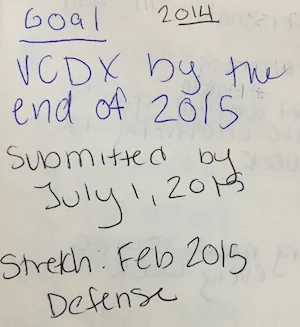 Goal 2014
VCDX by the
end of 2015
Submitted by
July 1, 2015
Stretch: Feb 2015
Defense